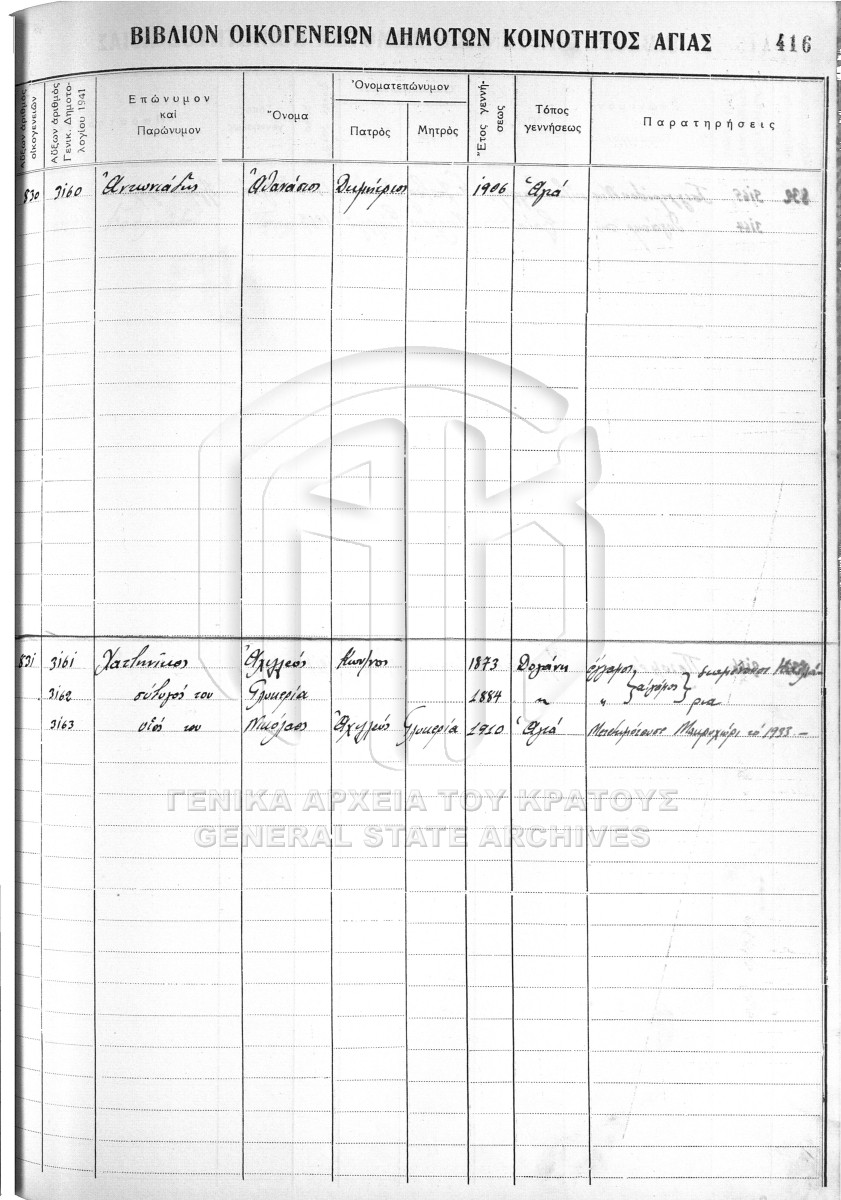 ΒΙΒΛΙΟΝ ΟΙΚΟΓΕΝΕΙΩΝ ΔΗΜΟΤΩΝ ΚΟΙΝΟΤΗΤΟΣ ΑΓΙΑΣ 416
Αὔξων ἀριθμὸς οἰκογενειῶν
Αὔξων ἀριθμὸς Γενικ. Δημοτολογίου 1941
Ἐπώνυμον καὶ Παρώνυμον
Ὄνομα
Ὀνοματεπώνυμον
Πατρὸς Μητρὸς
Ἔτος γεννήσεως
Τόπος γεννήσεως
Παρατηρήσεις
830 3160 Ἀντωνιάδης Ἀθανάσιος Δημήτριος 1906 Ἁγιά
831 3161 Χατζηνίκος Ἀχιλλεύς Κων/νος 1873 ἔγγαμος
3162 σύζυγός του Γλυκερία 1884 " "
3163 υἱός του Νικόλαος Ἀχιλλεύς Γλυκερία 1910 Ἁγιά Μετεδημότευσε Μακρυχώρι τό 1933 —
ΓΕΝΙΚΑ ΑΡΧΕΙΑ ΤΟΥ ΚΡΑΤΟΥΣ
GENERAL STATE ARCHIVES